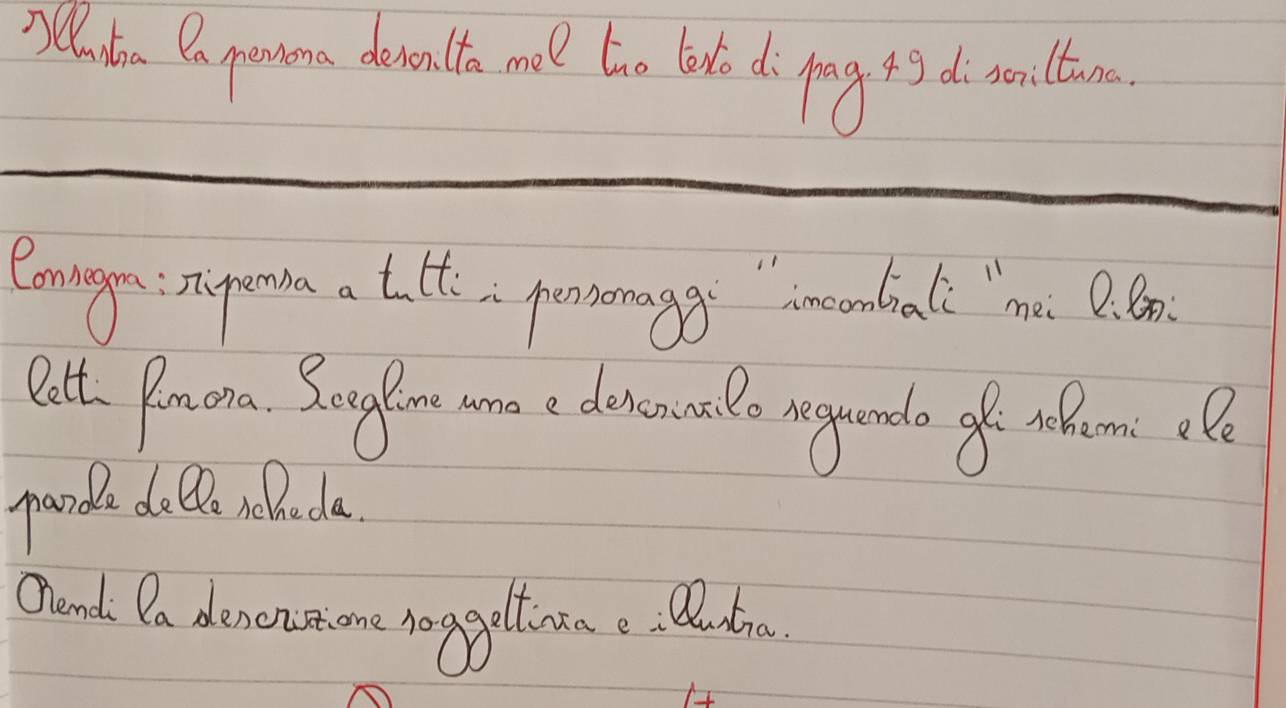 Illustra la persona descritta nel tuo testo di pag. 49 di scrittura.
Consegna: ripensa a tutti i personaggi "incontrati" nei libri
letti finora. Scegline uno e descrivilo seguendo gli schemi e le
parole delle scheda.
Rendi la descrizione soggettiva e illustra.